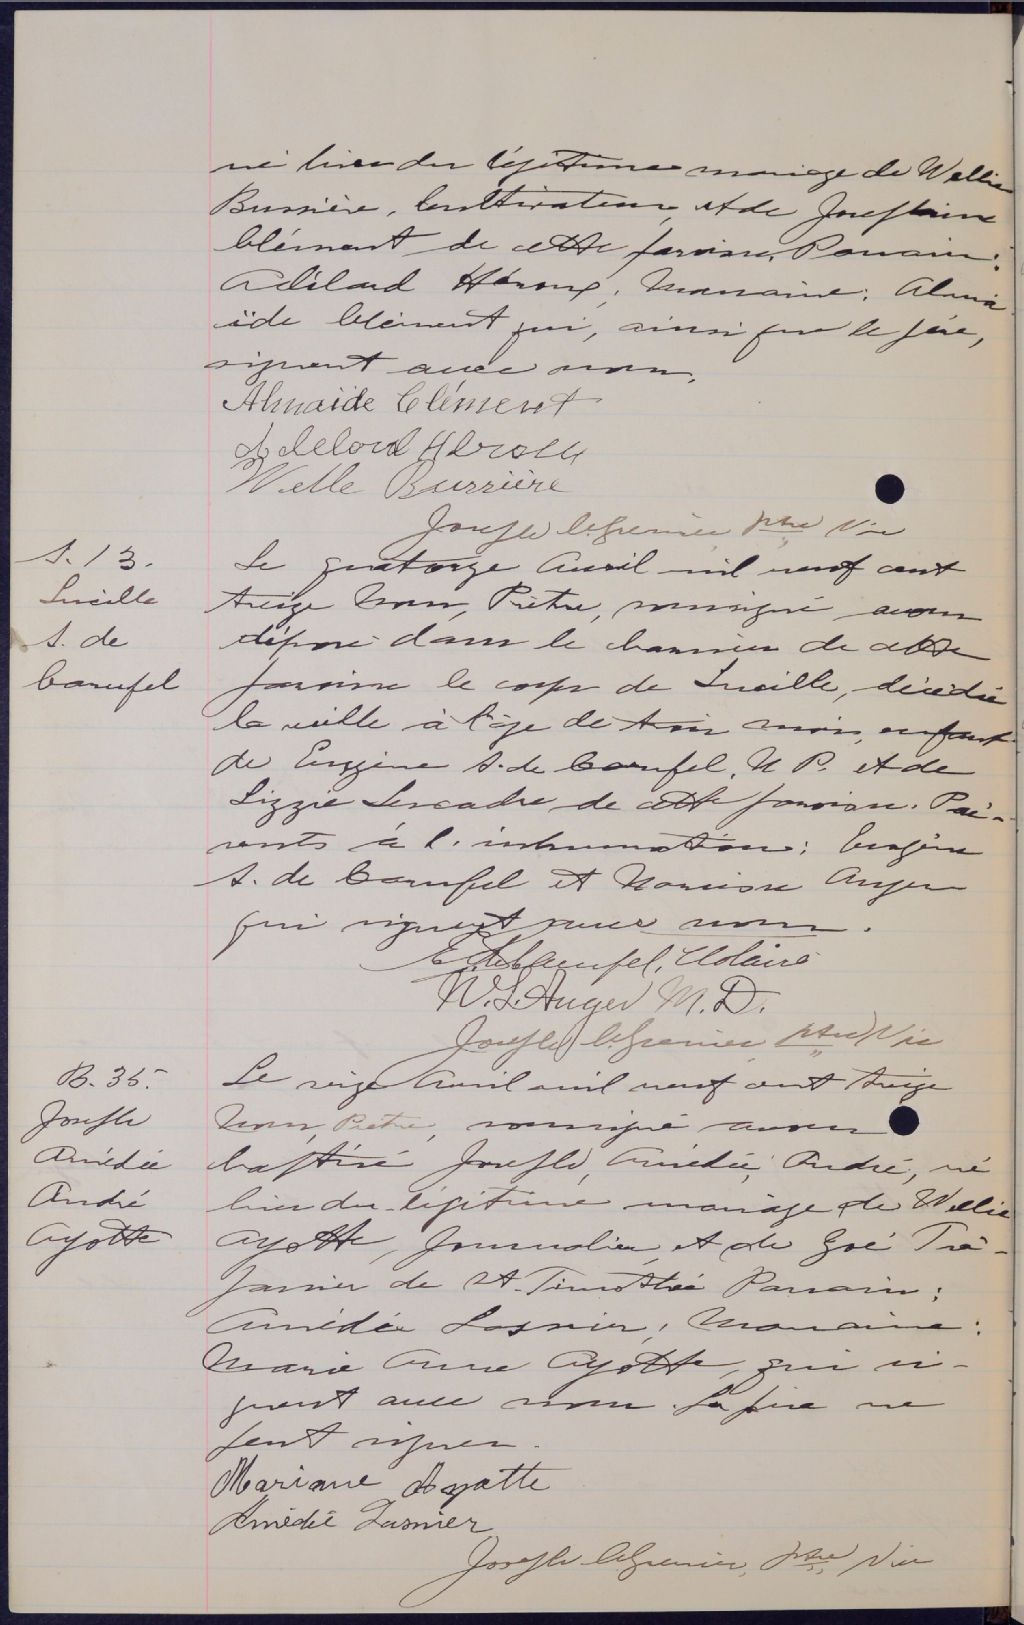 né hier du légitime mariage de Wellie
Bussière, Cultivateur, et de Josephine
Clément de cette paroisse. Parrain:
Adélard Héroux; Marraine: Alma-
ïde Clément qui, ainsi que le père,
signent avec nous.
Almaïde Clément
Adelord Heroux
Welle Bussière
Joseph C. Grenier, ptre Vic
S. 13.
Lucille
S. de
Carufel
Le quatorze Avril mil neuf cent
treize Nous, Prêtre, soussigné avons
déposé dans le charnier de cette
paroisse le corps de Lucille, décédée
la veille à l'âge de trois mois, enfant
de Eugène S. de Carufel, N P. et de
Lizzie Lescadre, de cette paroisse. Pré-
sents à l'inhumation: Eugène
S. de Carufel et Narcisse Auger
qui signent avec nous.
E. S. de Carufel, Notaire
N. L. Auger M. D.
Joseph C. Grenier ptre Vic
B. 35.
Joseph
Amédée
André
Ayotte
Le seize Avril mil neuf cent treize
Nous, Prêtre, soussigné avons
baptisé Joseph, Amédée, André, né
hier du légitime mariage de Wellie
Ayotte, Journalier, et de Zoé Tré-
panier de St. Timothée Parrain:
Amédée Lasnier; Marraine:
Marie Anne Ayotte, qui si-
gnent avec nous. Le père ne
peut signer.
Mariane Ayotte
Amédée Lasnier
Joseph C. Grenier, ptre Vic